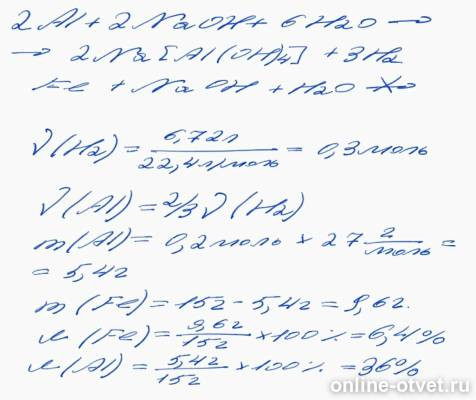 2Al + 2NaOH + 6H2O →
→ 2Na[Al(OH)4] + 3H2
Fe + NaOH + H2O ↛
ν(H2) = 6,72л / 22,4л/моль = 0,3моль
ν(Al) = 2/3 ν(H2)
m(Al) = 0,2моль × 27 г/моль =
= 5,4г
m(Fe) = 15г - 5,4г = 9,6г.
ω(Fe) = 9,6г / 15г × 100% = 6,4%
ω(Al) = 5,4г / 15г × 100% = 36%
online-otvet.ru